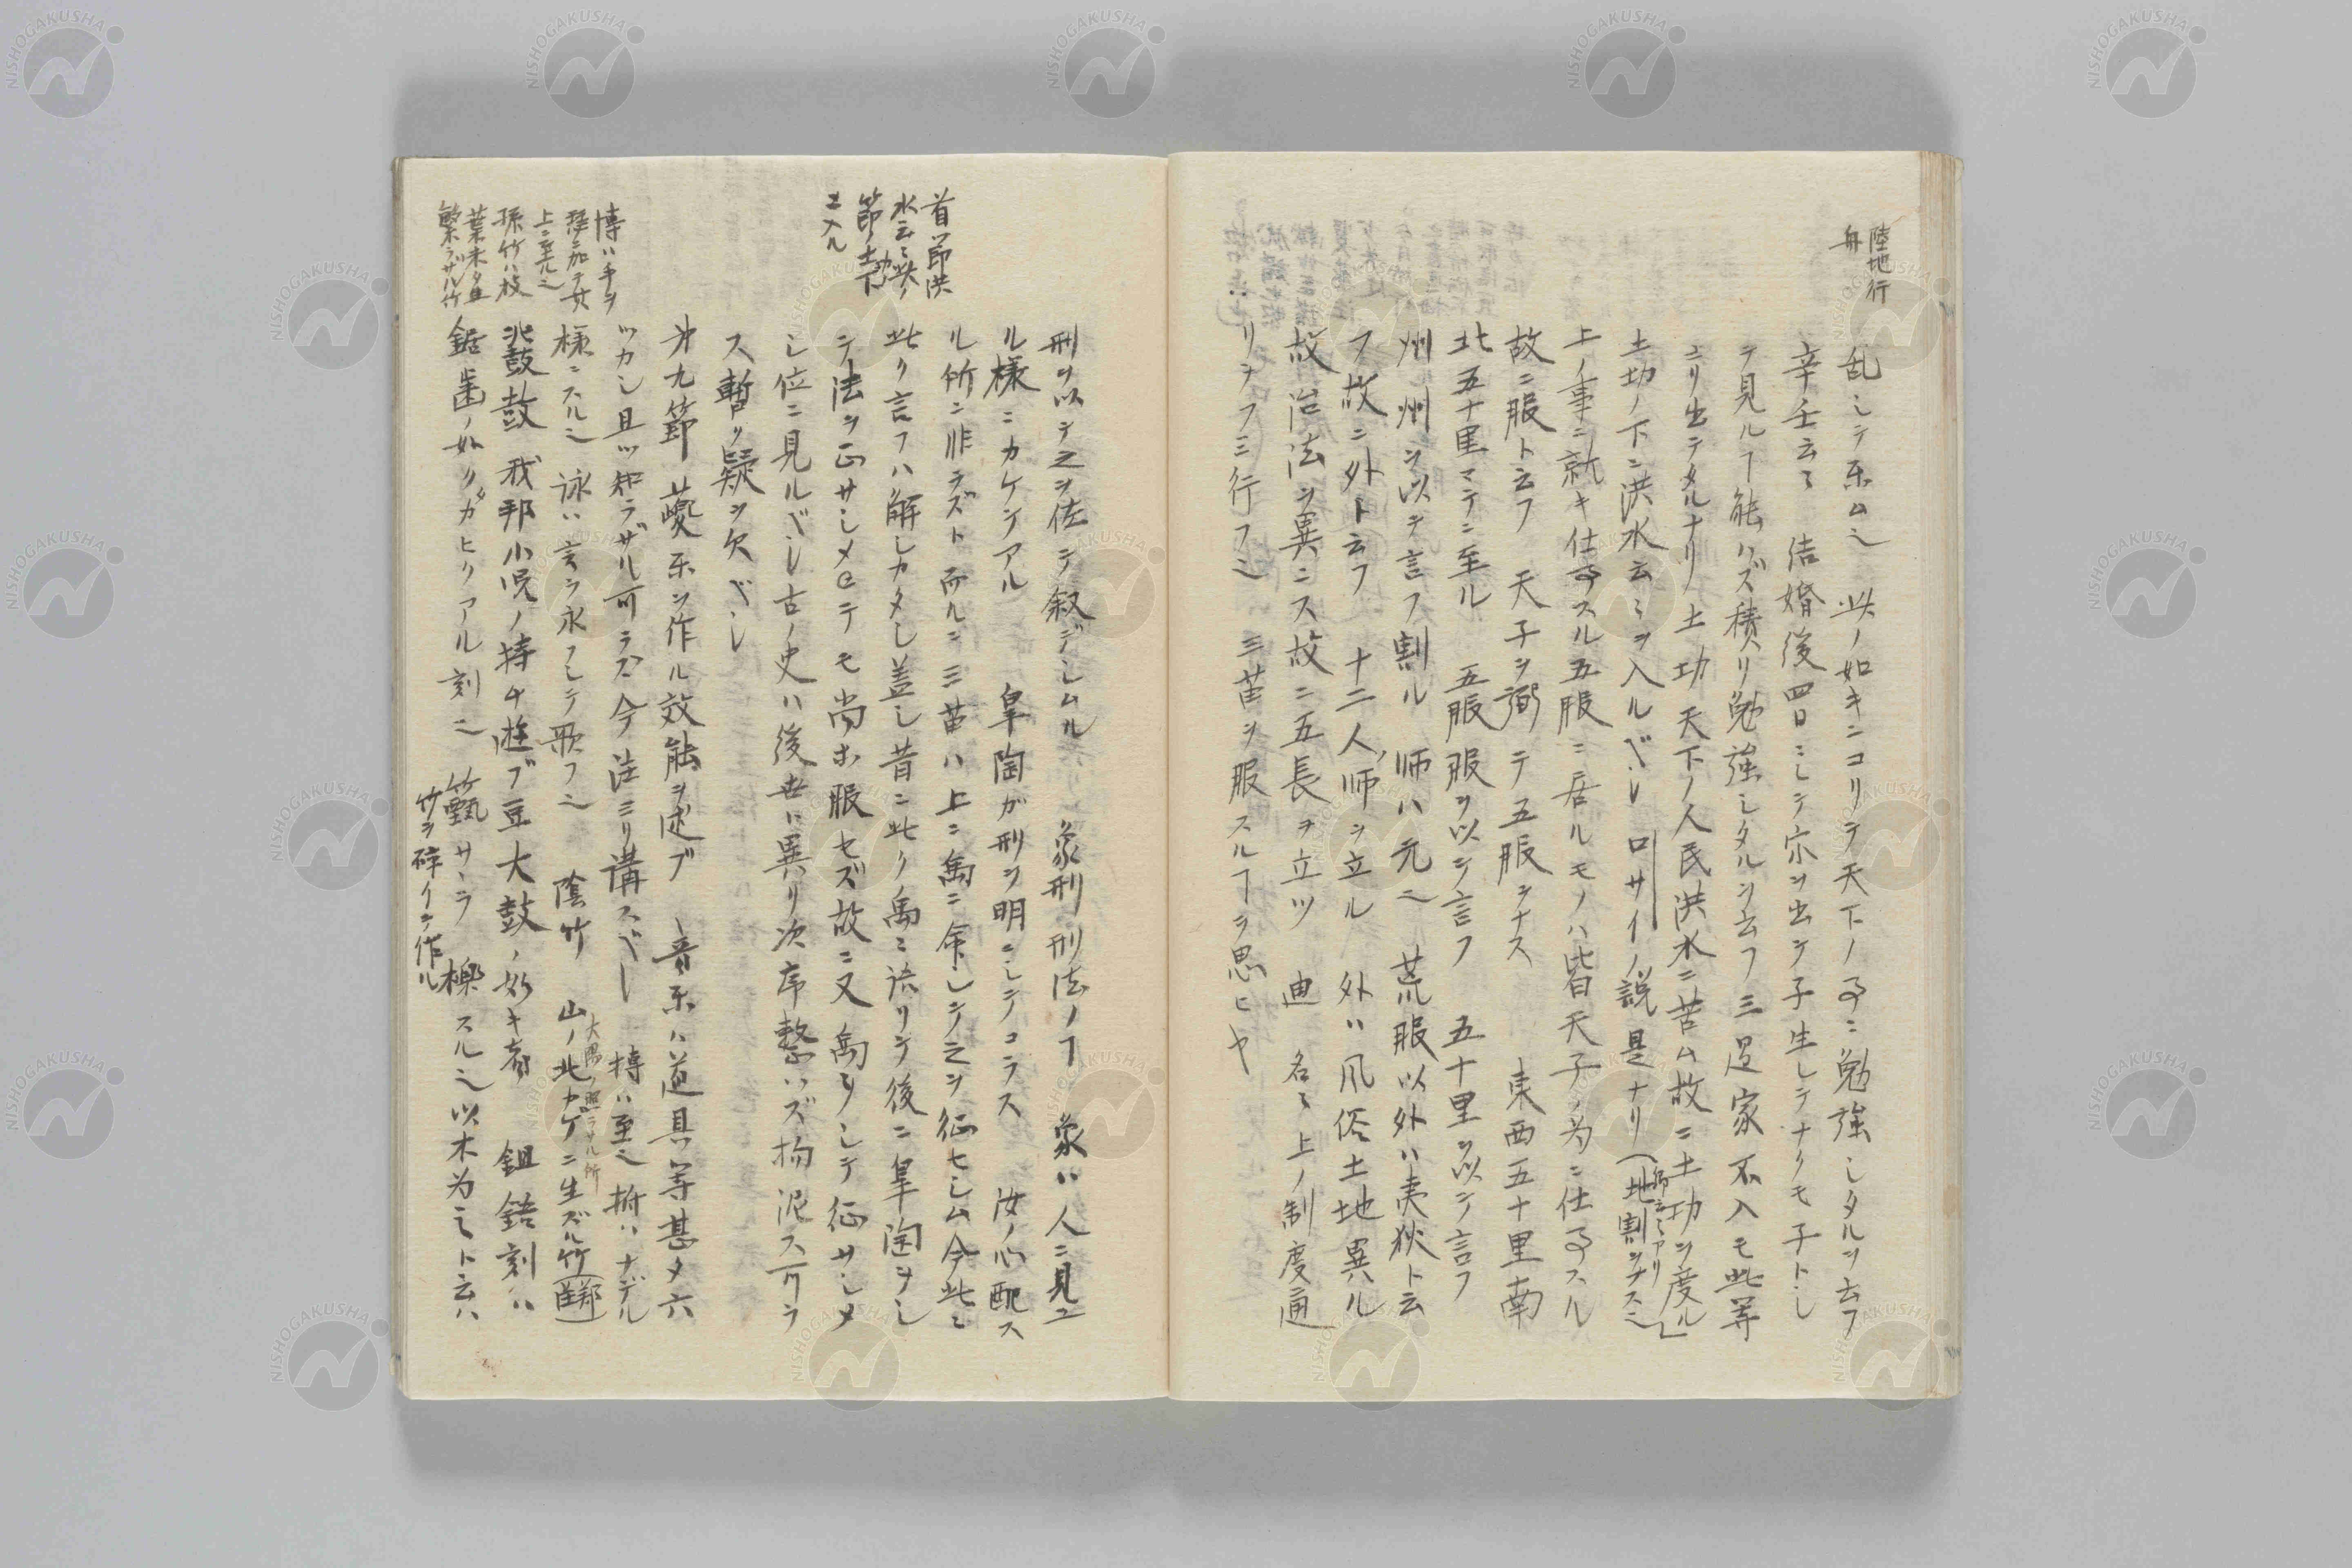 陸地行
舟
乱シテ楽ム也 此ノ如キニコリテ天下ノ事ニ勉強シタルヲ云フ
辛壬云々 結婚後四日ニシテ家ヲ出デ子生レテナクモ子トシ
テ見ルヿ能ハズ積リ勉強シタルヲ云フ 三過家不入モ此等
ヨリ出テタルナリ 土功 天下ノ人民洪水ニ苦ム故ニ土功ヲ度ル」
土功ノ下ニ洪水云々ヲ入ルベシ ロサイノ説是ナリ(地割ヲナス也
上ノ事ニ就キ仕事スル五服ニ居ルモノハ皆天子ノ為ニ仕事スル
故ニ服ト云フ 天子ヲ弼テ五服ヲナス 東西五十里南
北五十里マテニ至ル 五服服ヲ以テ言フ 五十里ヲ以テ言フ
州州ヲ以テ言フ割ル 師ハ元也 荒服以外ハ夷狄ト云
フ故ニ外ト云フ 十二人ノ師ヲ立ル 外ハ風俗土地異ル
故治法ヲ異ニス故ニ五長ヲ立ツ 迪 各々上ノ制度通
リヲフミ行フ也 三苗ヲ服スルヿヲ思ヒヤ
首節洪
水云々此ノ
節ノ土功ノ下
ニ入ル
刑ヲ以テ之ヲ佐ケテ叙デシムル 象刑刑法ノヿ 象ハ人ニ見ユ
ル様ニカケテアル 皐陶ガ刑ヲ明ニシテコラス 汝ノ心配ス
ル所ニ非ラズト 而ルニ三苗ハ上ニ禹ニ命シテ之ヲ征セシム今此ニ
此ク言フハ解シカタシ蓋シ昔ニ此ク禹ニ語リテ後ニ皐陶ヲシ
テ法ヲ正サシメ已テモ尚ホ服セズ故ニ又禹ヲシテ征サシメ
シ位ニ見ルベシ古ノ史ハ後世ニ異リ次序整ハズ拘泥ス可ラ
ス暫ク疑ヲ欠ベシ
才九節 夔楽ヲ作ル效能ヲ述ブ 音楽ハ道具等甚タ六
ツカシ且ツ知ラザル可ラズ今注ニヨリ講スベシ 搏ハ至也 拊ハナデル
様ニスル也 詠ハ言ヲ永フシテ歌フ也 陰竹 山ノ北カゲニ生ズル竹(鄭箋)
大陽ノ照ラサル所
鼗鼓 我邦小児ノ持チ遊ブ豆大鼓ノ如キ者 鉏鋙刻ハ
鋸歯ノ如クガヒクアル刻也 籈 サヽラ 櫟スル也以木為之ト云ハ
竹ヲ碎クヲ作ル
博ハ手ヲ
琴ニ加テ其
上ニ至ル也
孫竹ハ枝
葉未タ生
繁ラザル竹